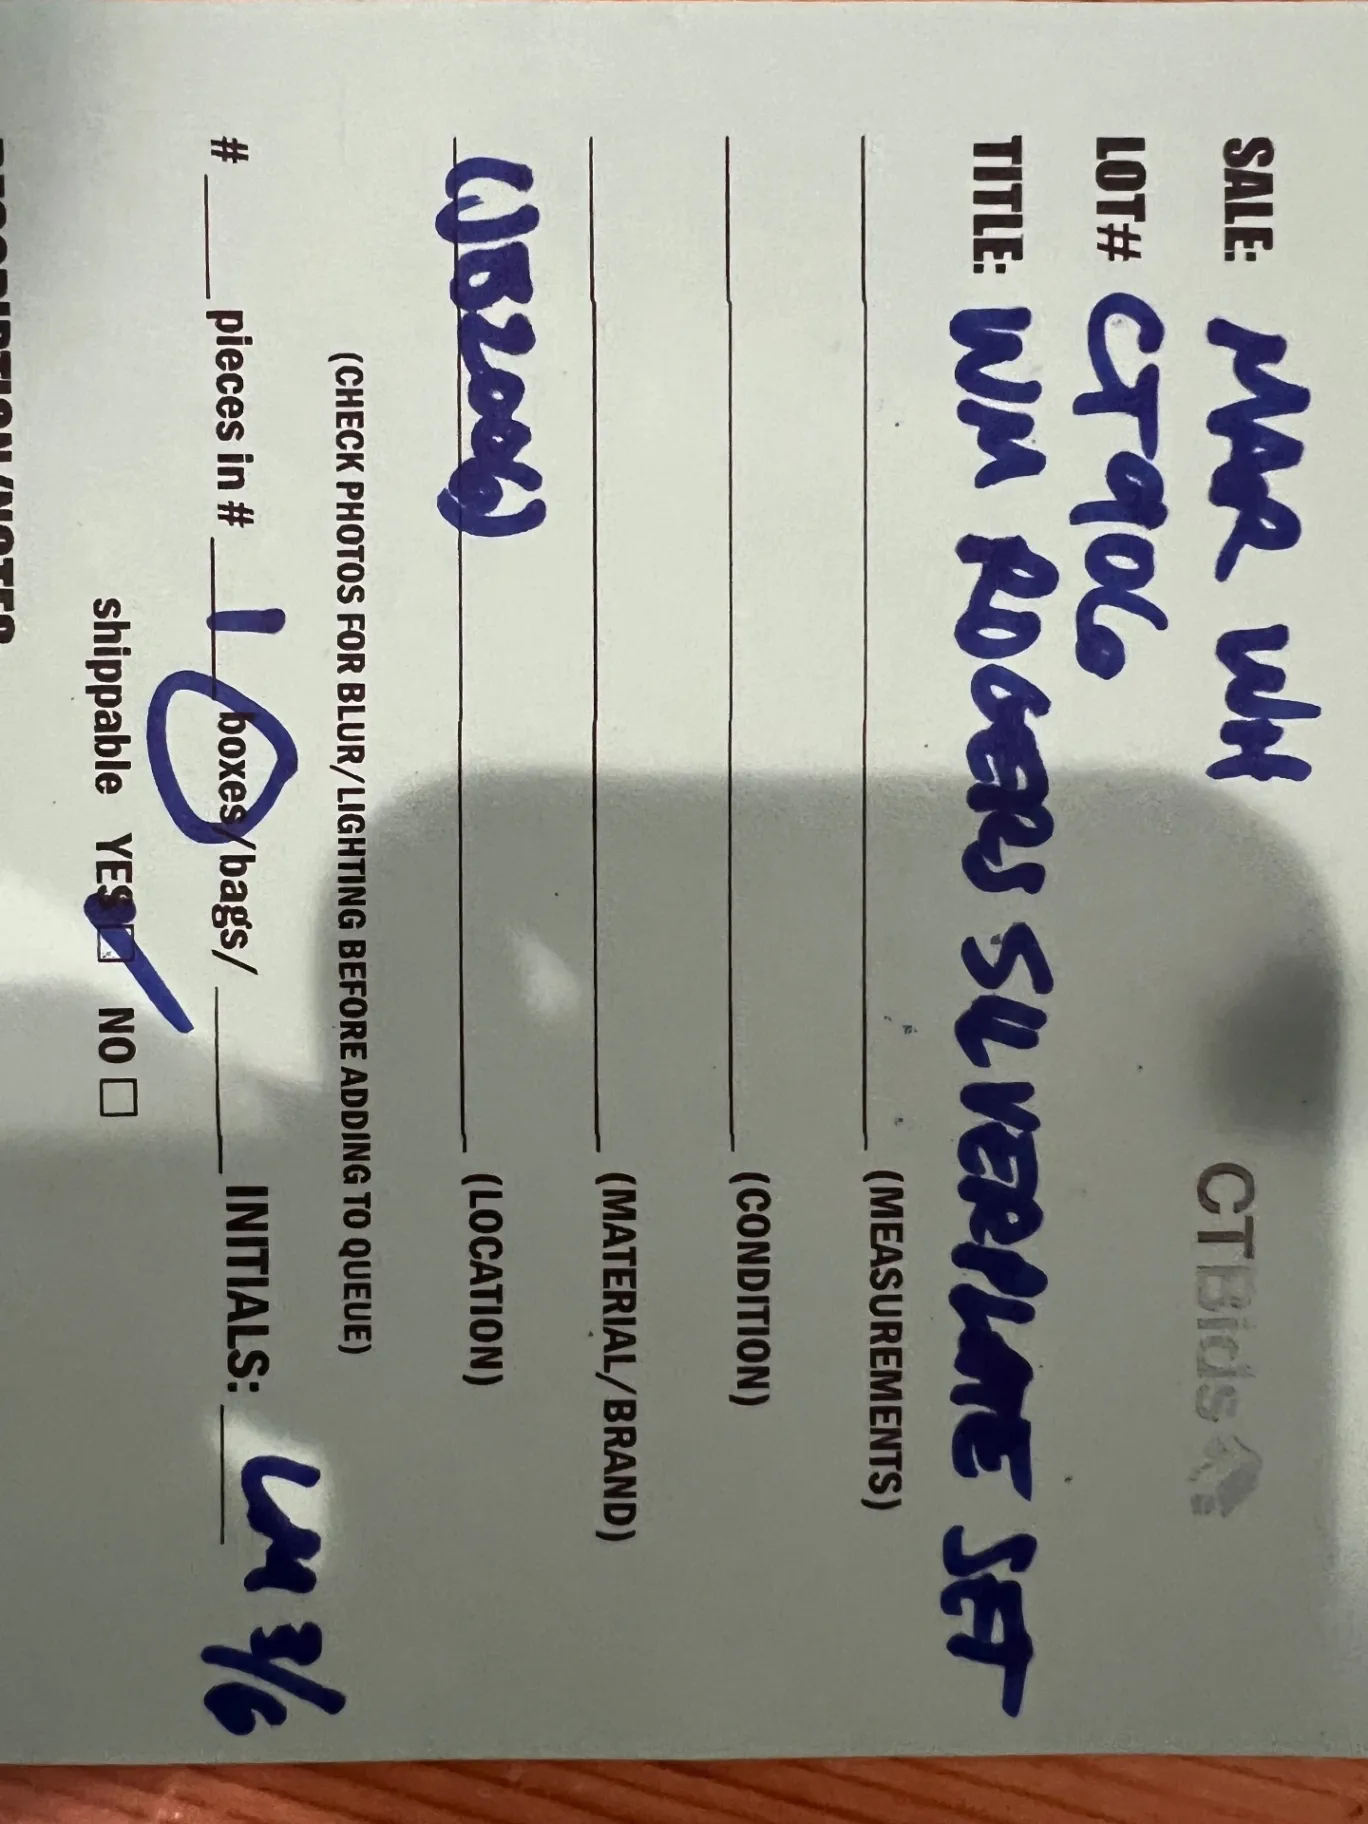 CTBids
SALE: MAR WH
LOT# CT906
TITLE: WM ROGERS SILVERPLATE SET
(MEASUREMENTS)
(CONDITION)
(MATERIAL/BRAND)
(JB2006) (LOCATION)
(CHECK PHOTOS FOR BLUR/LIGHTING BEFORE ADDING TO QUEUE)
# ___ pieces in # 1 boxes/bags/ ___ INITIALS: LM 3/6
shippable YES NO
DESCRIPTION/NOTES